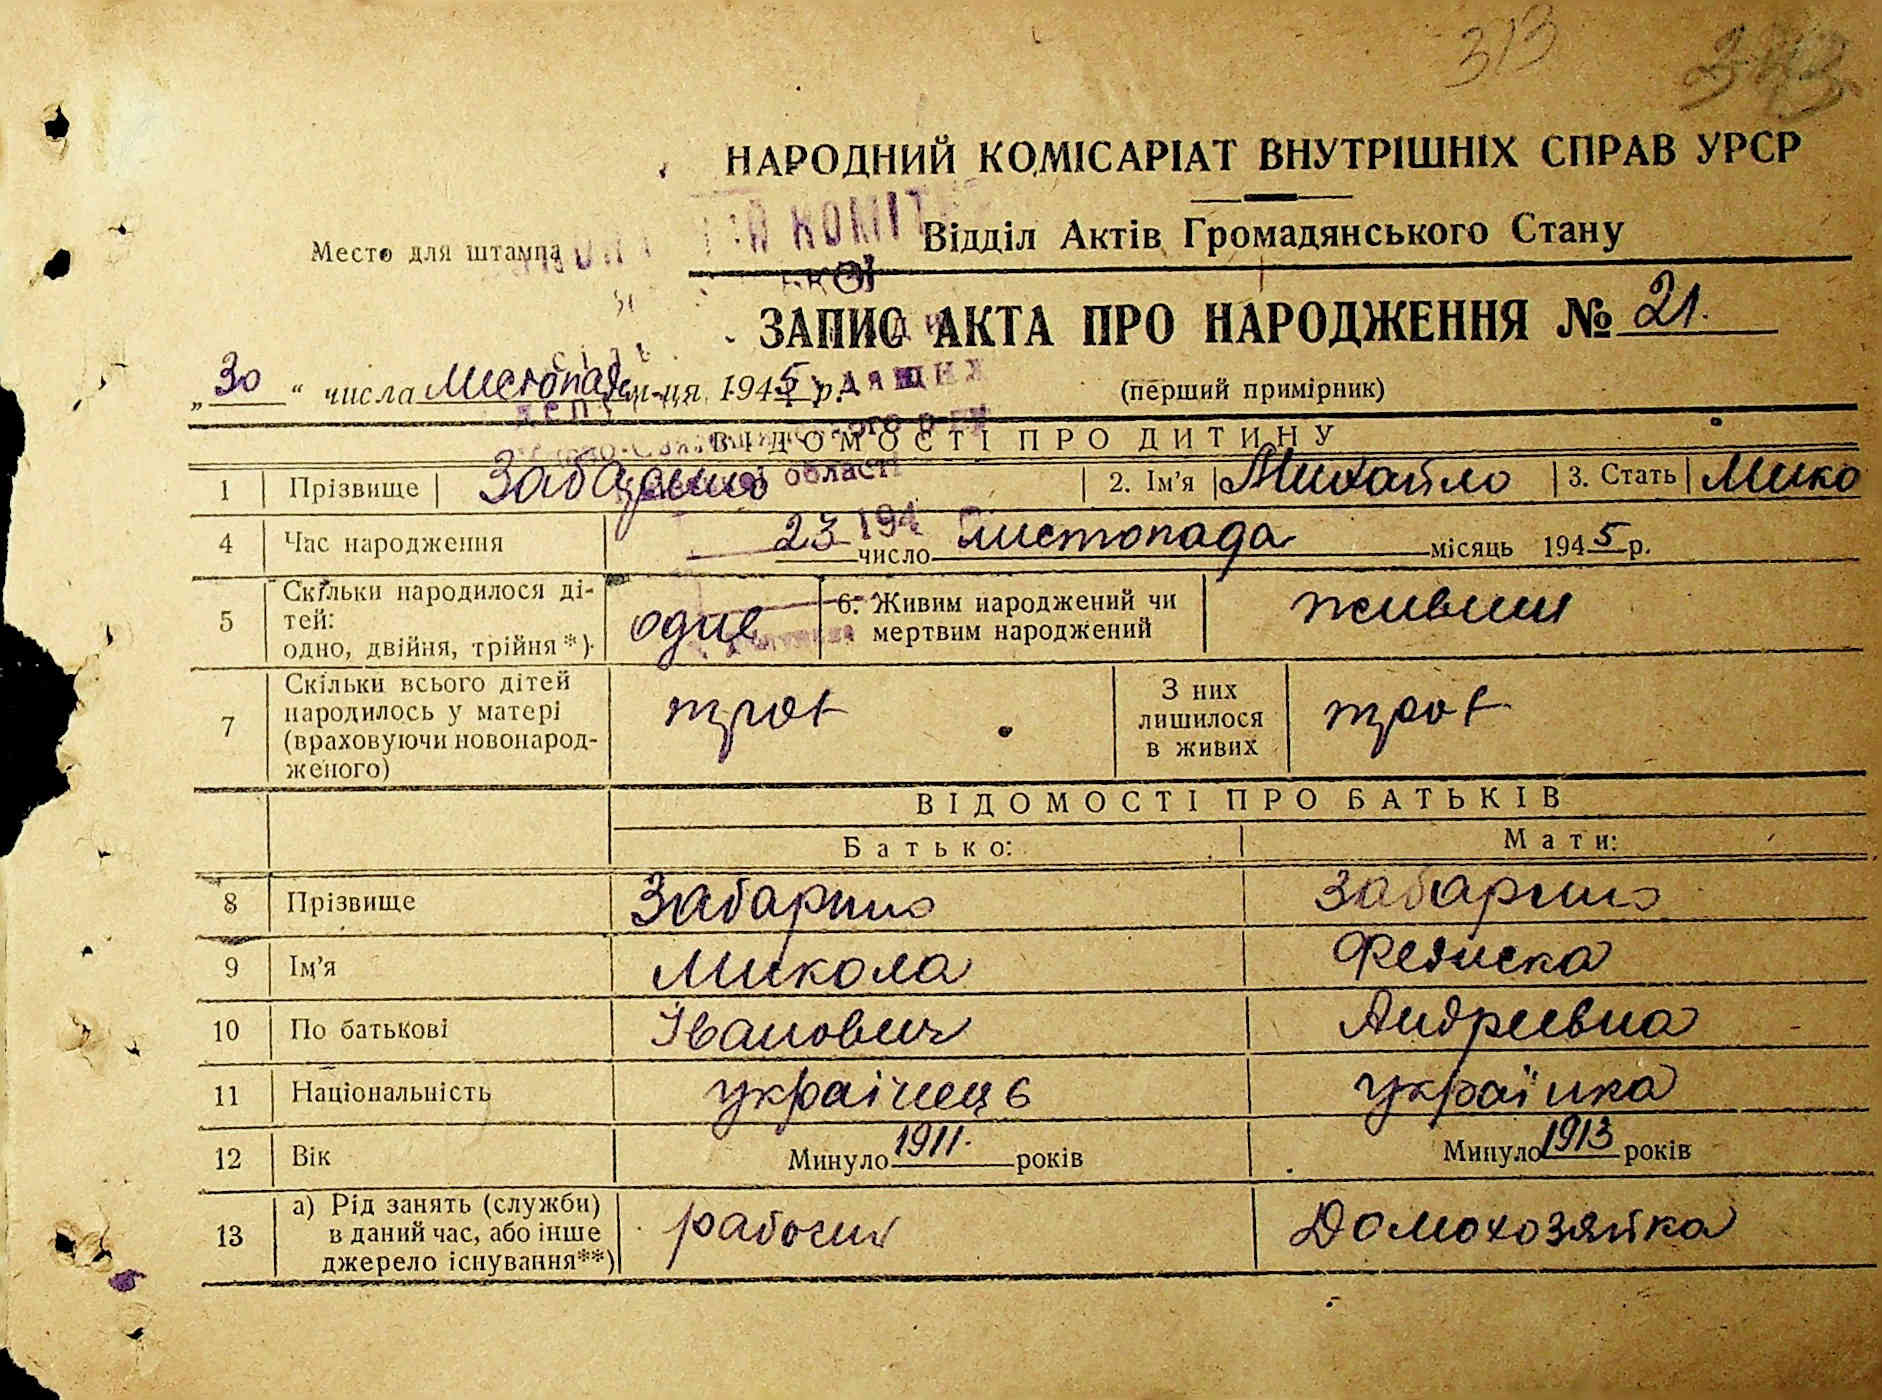 313
НАРОДНИЙ КОМІСАРІАТ ВНУТРІШНІХ СПРАВ УРСР
Место для штампа
Відділ Актів Громадянського Стану
ЗАПИС АКТА ПРО НАРОДЖЕННЯ № 21.
„30“ числа Листопада м-ця 1945 р.
(перший примірник)
ВІДОМОСТІ ПРО ДИТИНУ
області
1 Прізвище 2. Ім'я Михайло 3. Стать
194
4 Час народження 23 число листопада місяць 1945 р.
5 Скільки народилося ді-
тей:
одно, двійня, трійня*) одне
6. Живим народжений чи
мертвим народжений живим
7 Скільки всього дітей
народилось у матері
(враховуючи новонарод-
женого)
З них
лишилося
в живих
ВІДОМОСТІ ПРО БАТЬКІВ
Батько: Мати:
8 Прізвище Забарило Забарило
9 Ім'я Микола
10 По батькові Іванович Андреевна
11 Національність українець українка
12 Вік Минуло 1911. років Минуло 1913 років
13 а) Рід занять (служби)
в даний час, або інше
джерело існування**) рабочий Домохозяйка